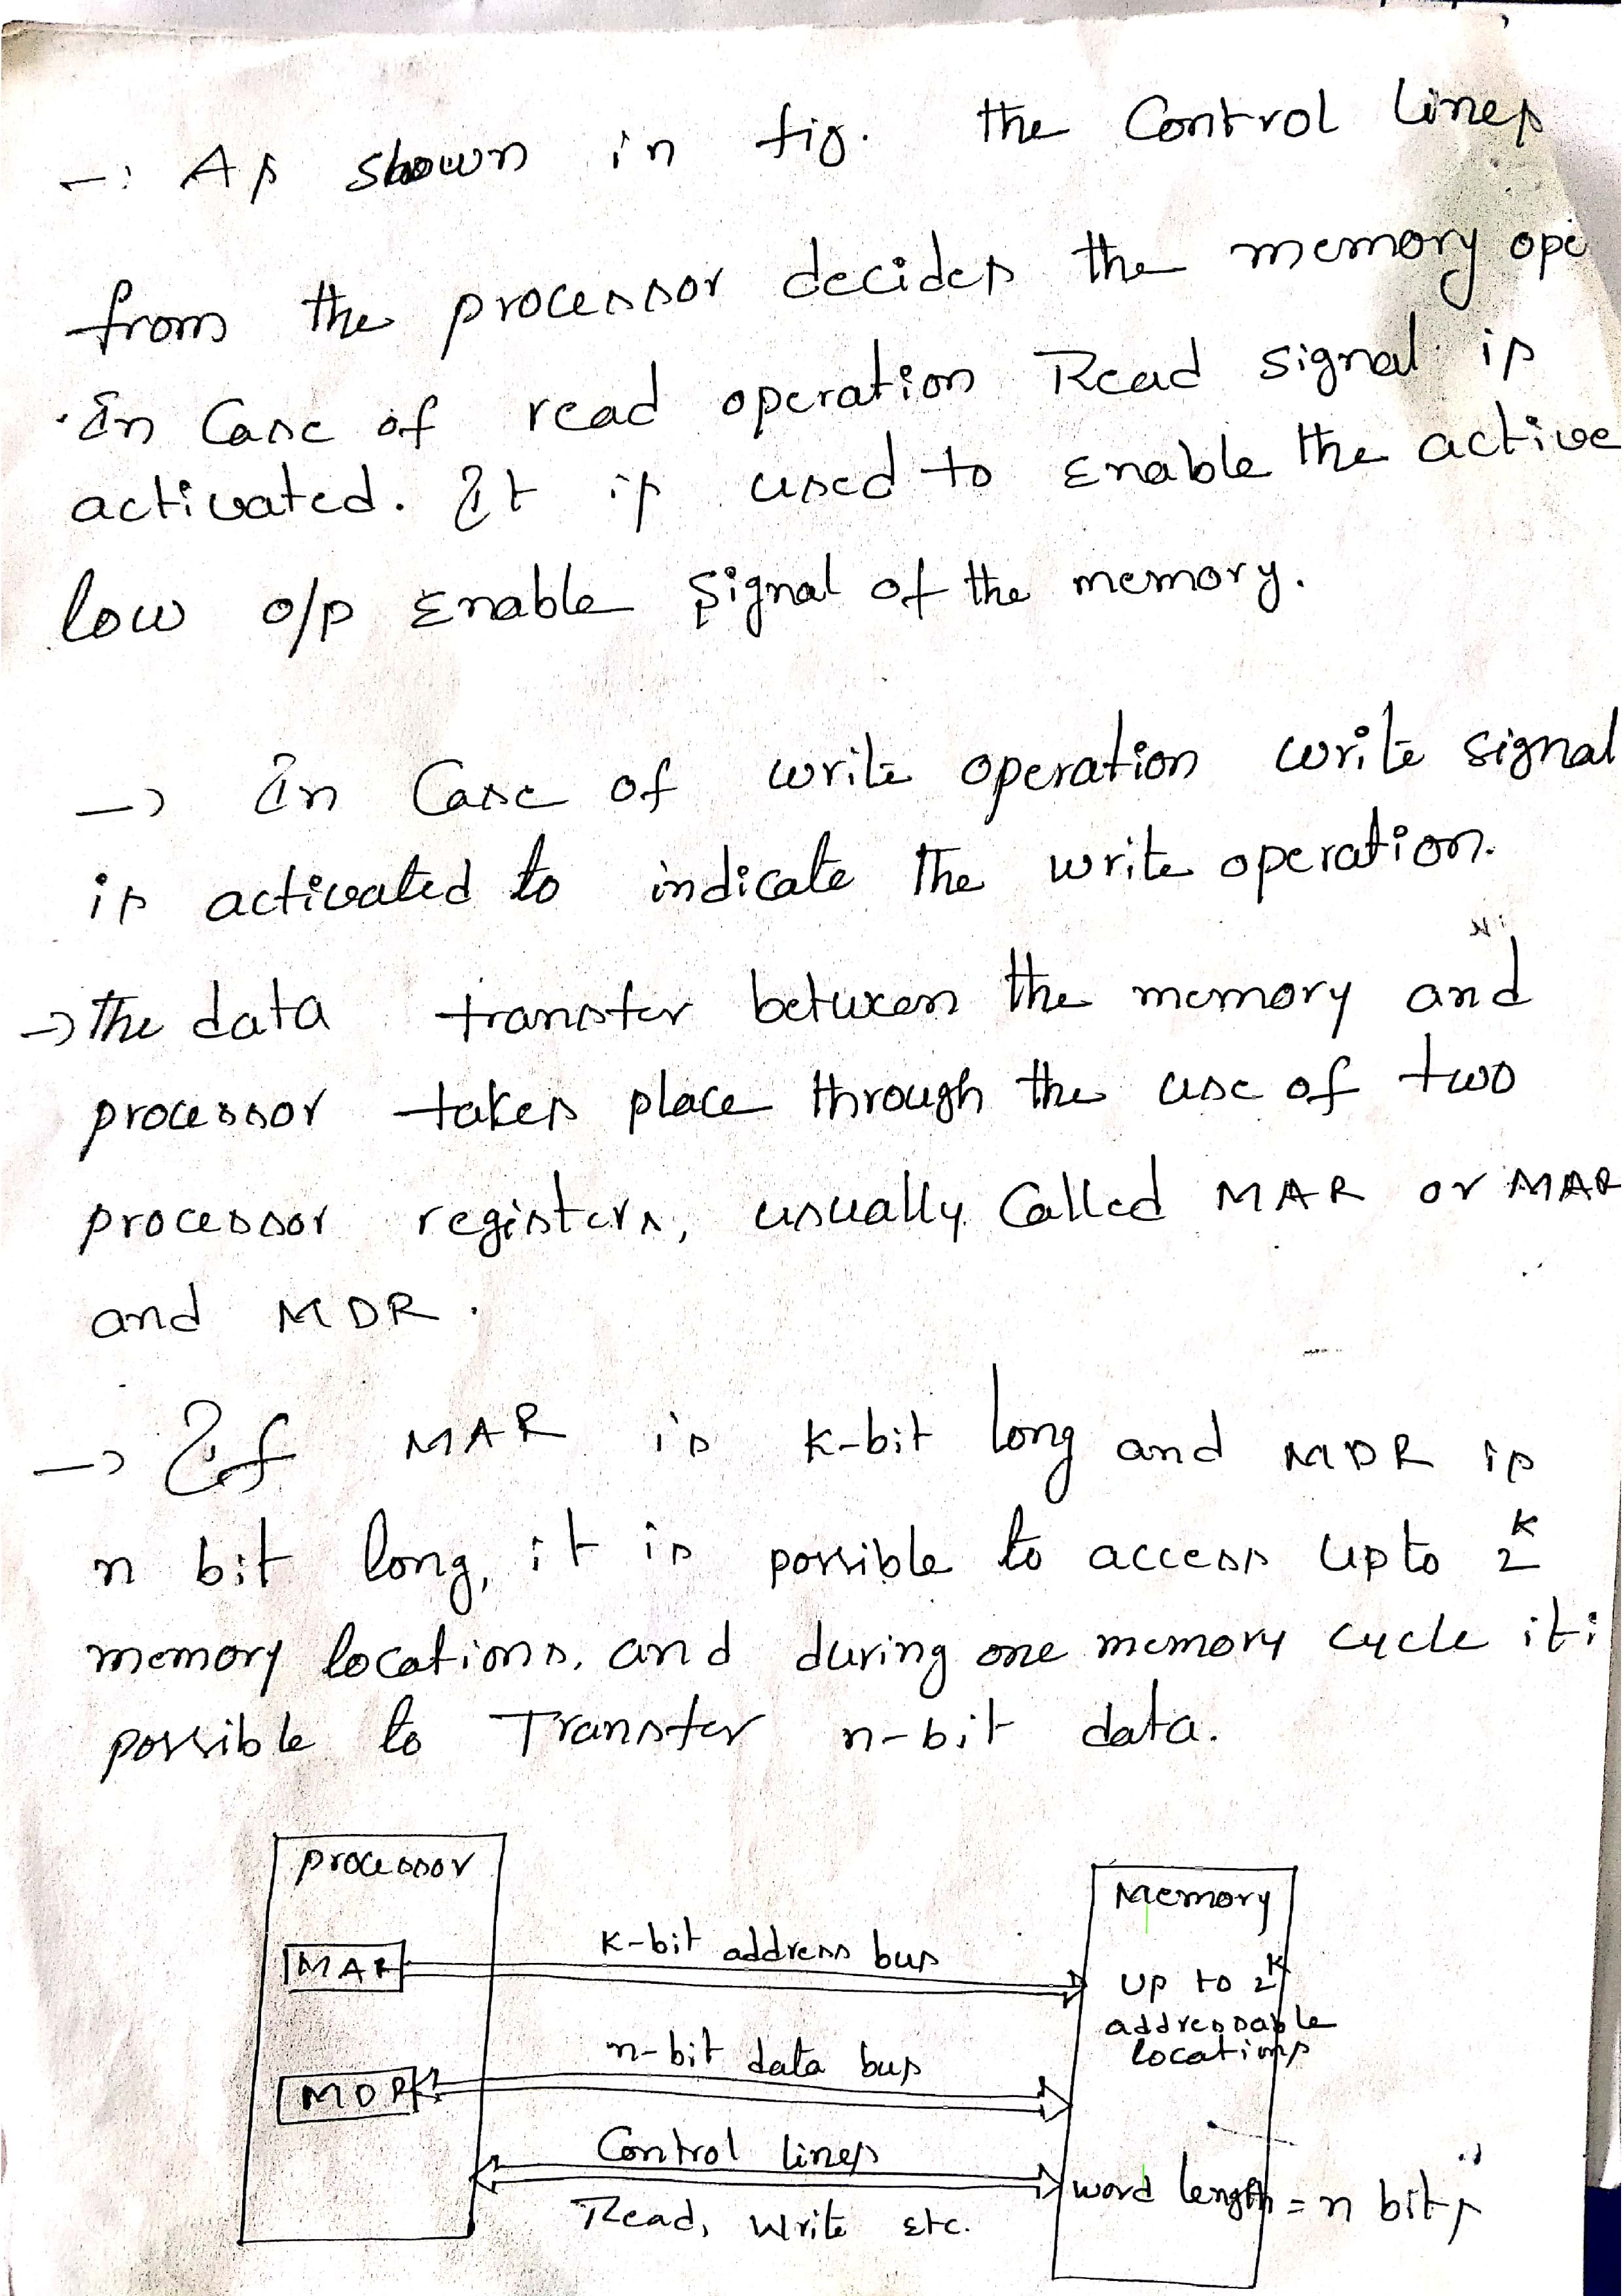 → As shown in fig. the Control lines
from the processor decides the memory ope
In Case of read operation Read signal is
activated. It is used to Enable the active
low o/p Enable signal of the memory.
→ In Case of write operation write signal
is activated to indicate the write operation.
→ The data transfer between the memory and
processor takes place through the use of two
processor registers, usually Called MAR or MAR
and MDR.
→ If MAR is K-bit long and MDR is
n bit long, it is possible to access upto 2^K
memory locations, and during one memory cycle it i
possible to Transfer n-bit data.
processor
Memory
MAR
K-bit address bus
Up to 2^K
addressable
locations
n-bit data bus
MDR
Control lines
word length = n bits
Read, Write Etc.